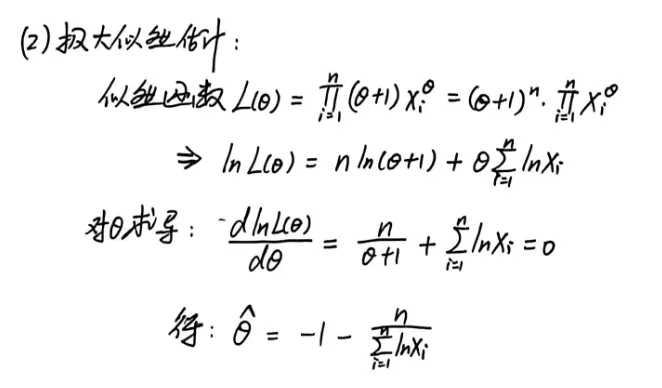 (2) 极大似然估计：
似然函数 L(θ) = ∏_{i=1}^{n} (θ+1) X_i^θ = (θ+1)^n · ∏_{i=1}^{n} X_i^θ
⇒ ln L(θ) = n ln(θ+1) + θ ∑_{i=1}^{n} ln X_i
对θ求导： d ln L(θ) / dθ = n / (θ+1) + ∑_{i=1}^{n} ln X_i = 0
得： θ̂ = -1 - n / ∑_{i=1}^{n} ln X_i